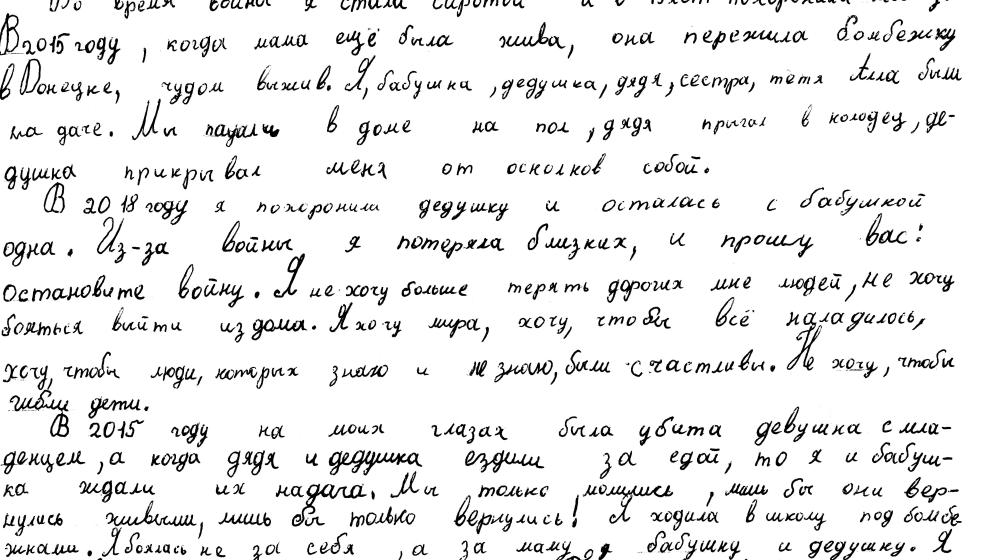 время войны я стала сиротой
В 2015 году, когда мама ещё была жива, она пережила бомбежку
в Донецке, чудом выжив. Я, бабушка, дедушка, дядя, сестра, тетя Алла были
на даче. Мы падали в доме на пол, дядя прыгал в колодец, де-
душка прикрывал меня от осколков собой.
В 2018 году я похоронила дедушку и осталась с бабушкой
одна. Из-за войны я потеряла близких, и прошу вас:
остановите войну. Я не хочу больше терять дорогих мне людей, не хочу
бояться выйти из дома. Я хочу мира, хочу, чтобы всё наладилось,
хочу, чтобы люди, которых знаю и не знаю, были счастливы. Не хочу, чтобы
гибли дети.
В 2015 году на моих глазах была убита девушка с мла-
денцем, а когда дядя и дедушка ездили за едой, то я и бабуш-
ка ждали их на дача. Мы только молились, лишь бы они вер-
нулись живыми, лишь бы только вернулись! Я ходила в школу под бомбе-
жками. Я боялась не за себя, а за маму, бабушку и дедушку. Я